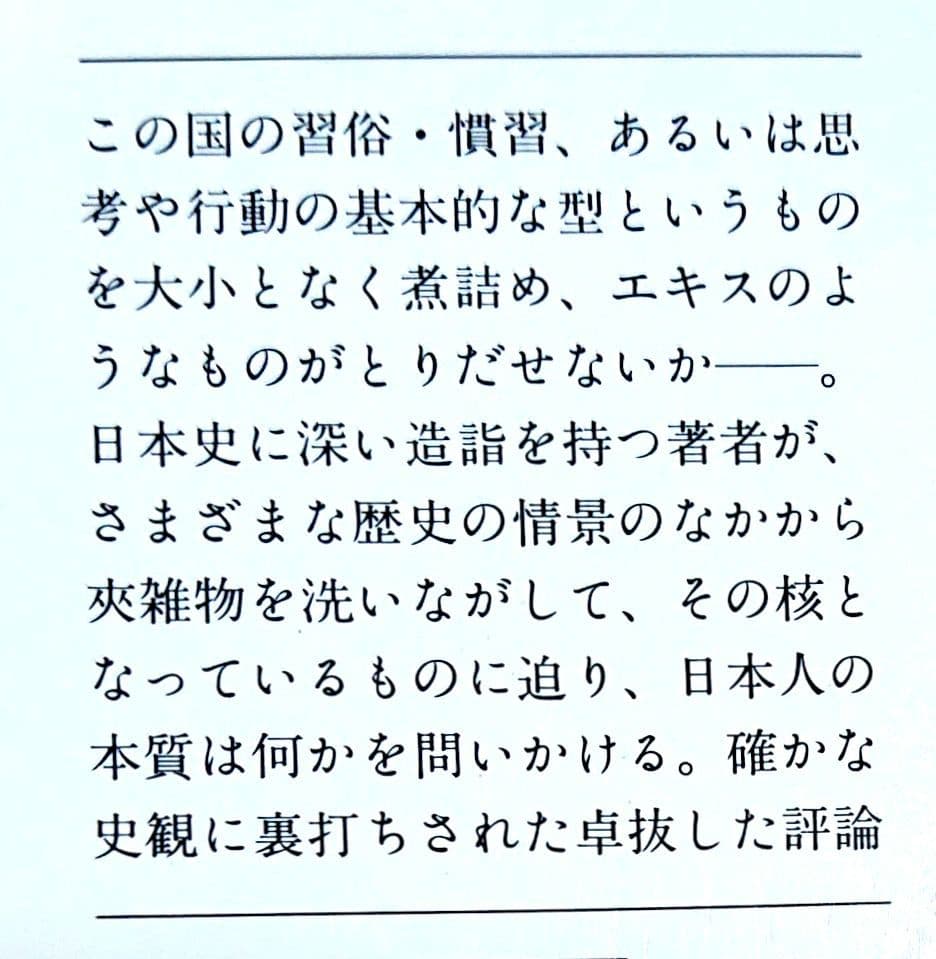 この国の習俗・慣習、あるいは思
考や行動の基本的な型というもの
を大小となく煮詰め、エキスのよ
うなものがとりだせないか――。
日本史に深い造詣を持つ著者が、
さまざまな歴史の情景のなかから
夾雑物を洗いながして、その核と
なっているものに迫り、日本人の
本質は何かを問いかける。確かな
史観に裏打ちされた卓抜した評論